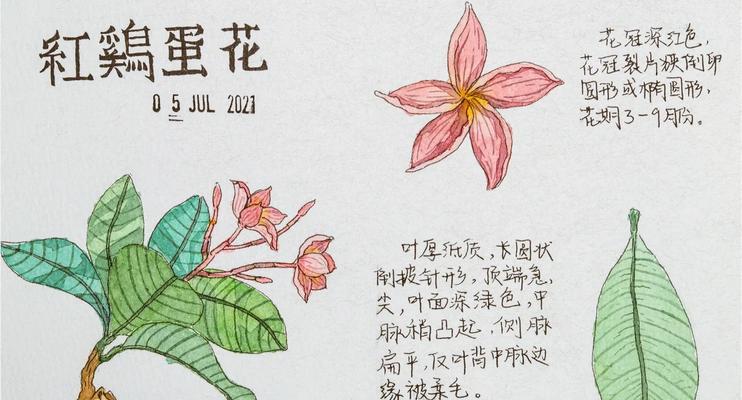 紅鷄蛋花
05 JUL 2021
花冠深红色,
花冠裂片狭倒卵
圆形或椭圆形,
花期3-9月份。
叶厚纸质,长圆状
倒披针形,顶端急
尖,叶面深绿色,中
脉稍凸起,侧脉
扁平,仅叶背中脉边
缘被柔毛。